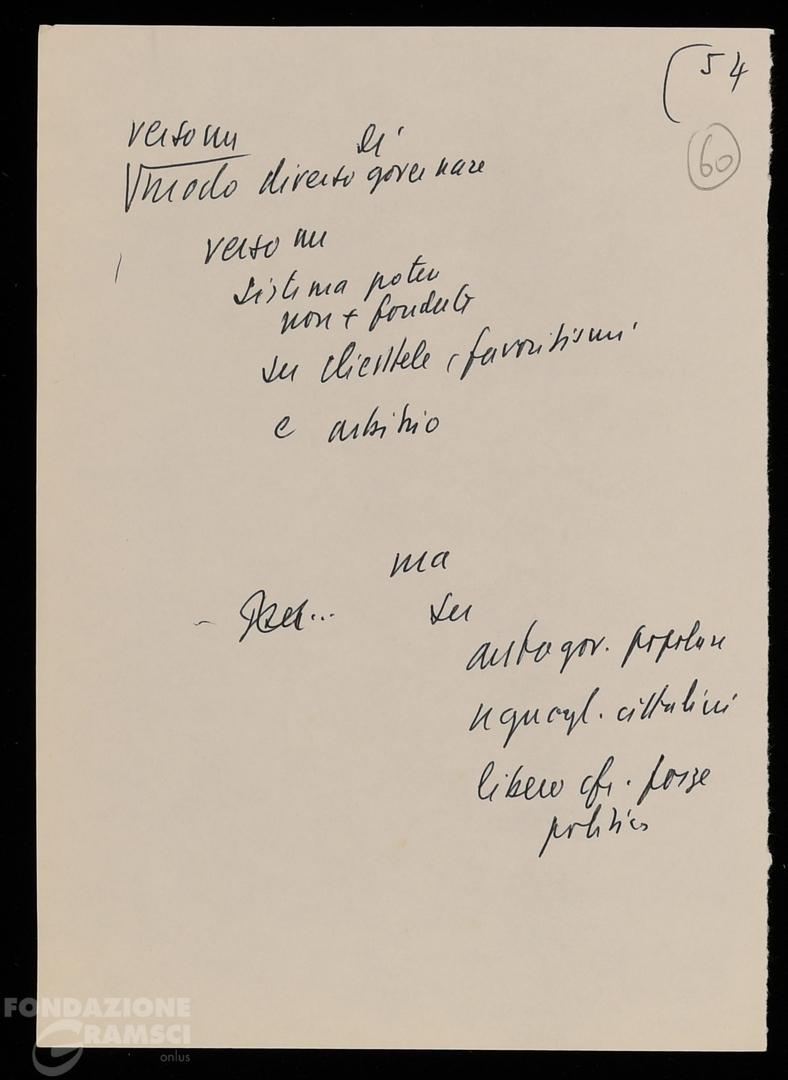 54
60
verso un
di
modo diverso governare
verso un
sistema poter
non + fondato
su clientele, favoritismi
e arbitrio
ma
su
autogov. popolare
uguagl. cittadini
libero cfr. forze
politiche
FONDAZIONE
GRAMSCI
onlus